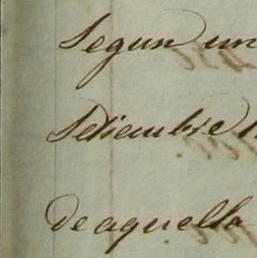 Segun un
Setiembre
de aquella